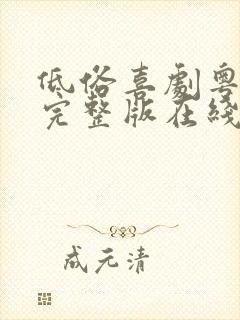 低俗喜劇粵
完整版在綫
成元清